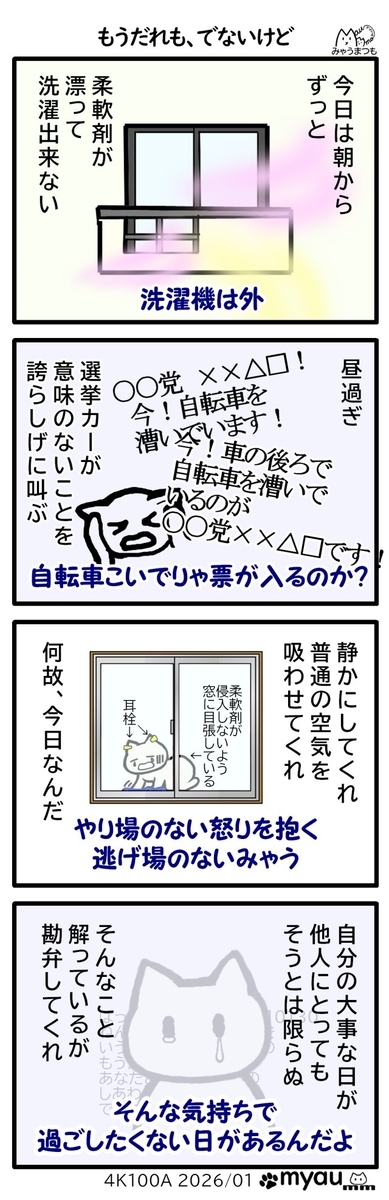 もうだれも、でないけど
みゃうまつも
今日は朝から
ずっと
柔軟剤が
漂って
洗濯出来ない
洗濯機は外
昼過ぎ
〇〇党 ××△□！
今！自転車を
漕いでいます！
今！車の後ろで
自転車を漕いで
いるのが
〇〇党××△□です！
選挙カーが
意味のないことを
誇らしげに叫ぶ
自転車こいでりゃ票が入るのか？
静かにしてくれ
普通の空気を
吸わせてくれ
柔軟剤が
侵入しないよう
窓に目張している
耳栓→
何故、今日なんだ
やり場のない怒りを抱く
逃げ場のないみゃう
自分の大事な日が
他人にとっても
そうとは限らぬ
そんなこと
解っているが
勘弁してくれ
そんな気持ちで
過ごしたくない日があるんだよ
4K100A 2026/01 myau